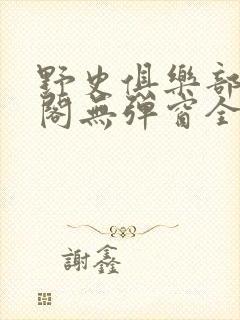 野史俱樂部
閣無彈窗全
謝鑫